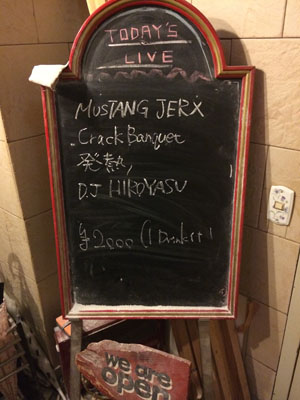 TODAY'S
LIVE
MUSTANG JERX
Crack Banquet
発熱
DJ HIROYASU
¥2000 (1 Drink付
we are
open